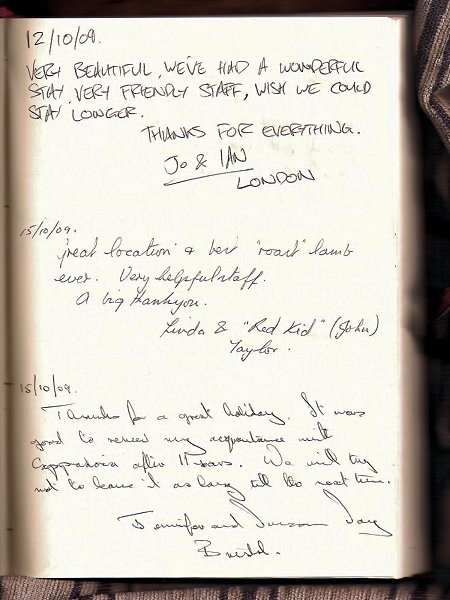 12/10/09.
VERY BEAUTIFUL, WE'VE HAD A WONDERFUL
STAY, VERY FRIENDLY STAFF, WISH WE COULD
STAY LONGER.
THANKS FOR EVERYTHING.
JO & IAN
LONDON
15/10/09.
great location & best "roast" lamb
ever. Very helpful staff.
A big thankyou.
Linda & "Red Kid" (John)
Taylor.
15/10/09.
Thanks for a great holiday. It was
good to renew my acquaintance with
Cappadocia after 11 years. We will try
not to leave it as long till the next time.
Jennifer and Day
Bristol.